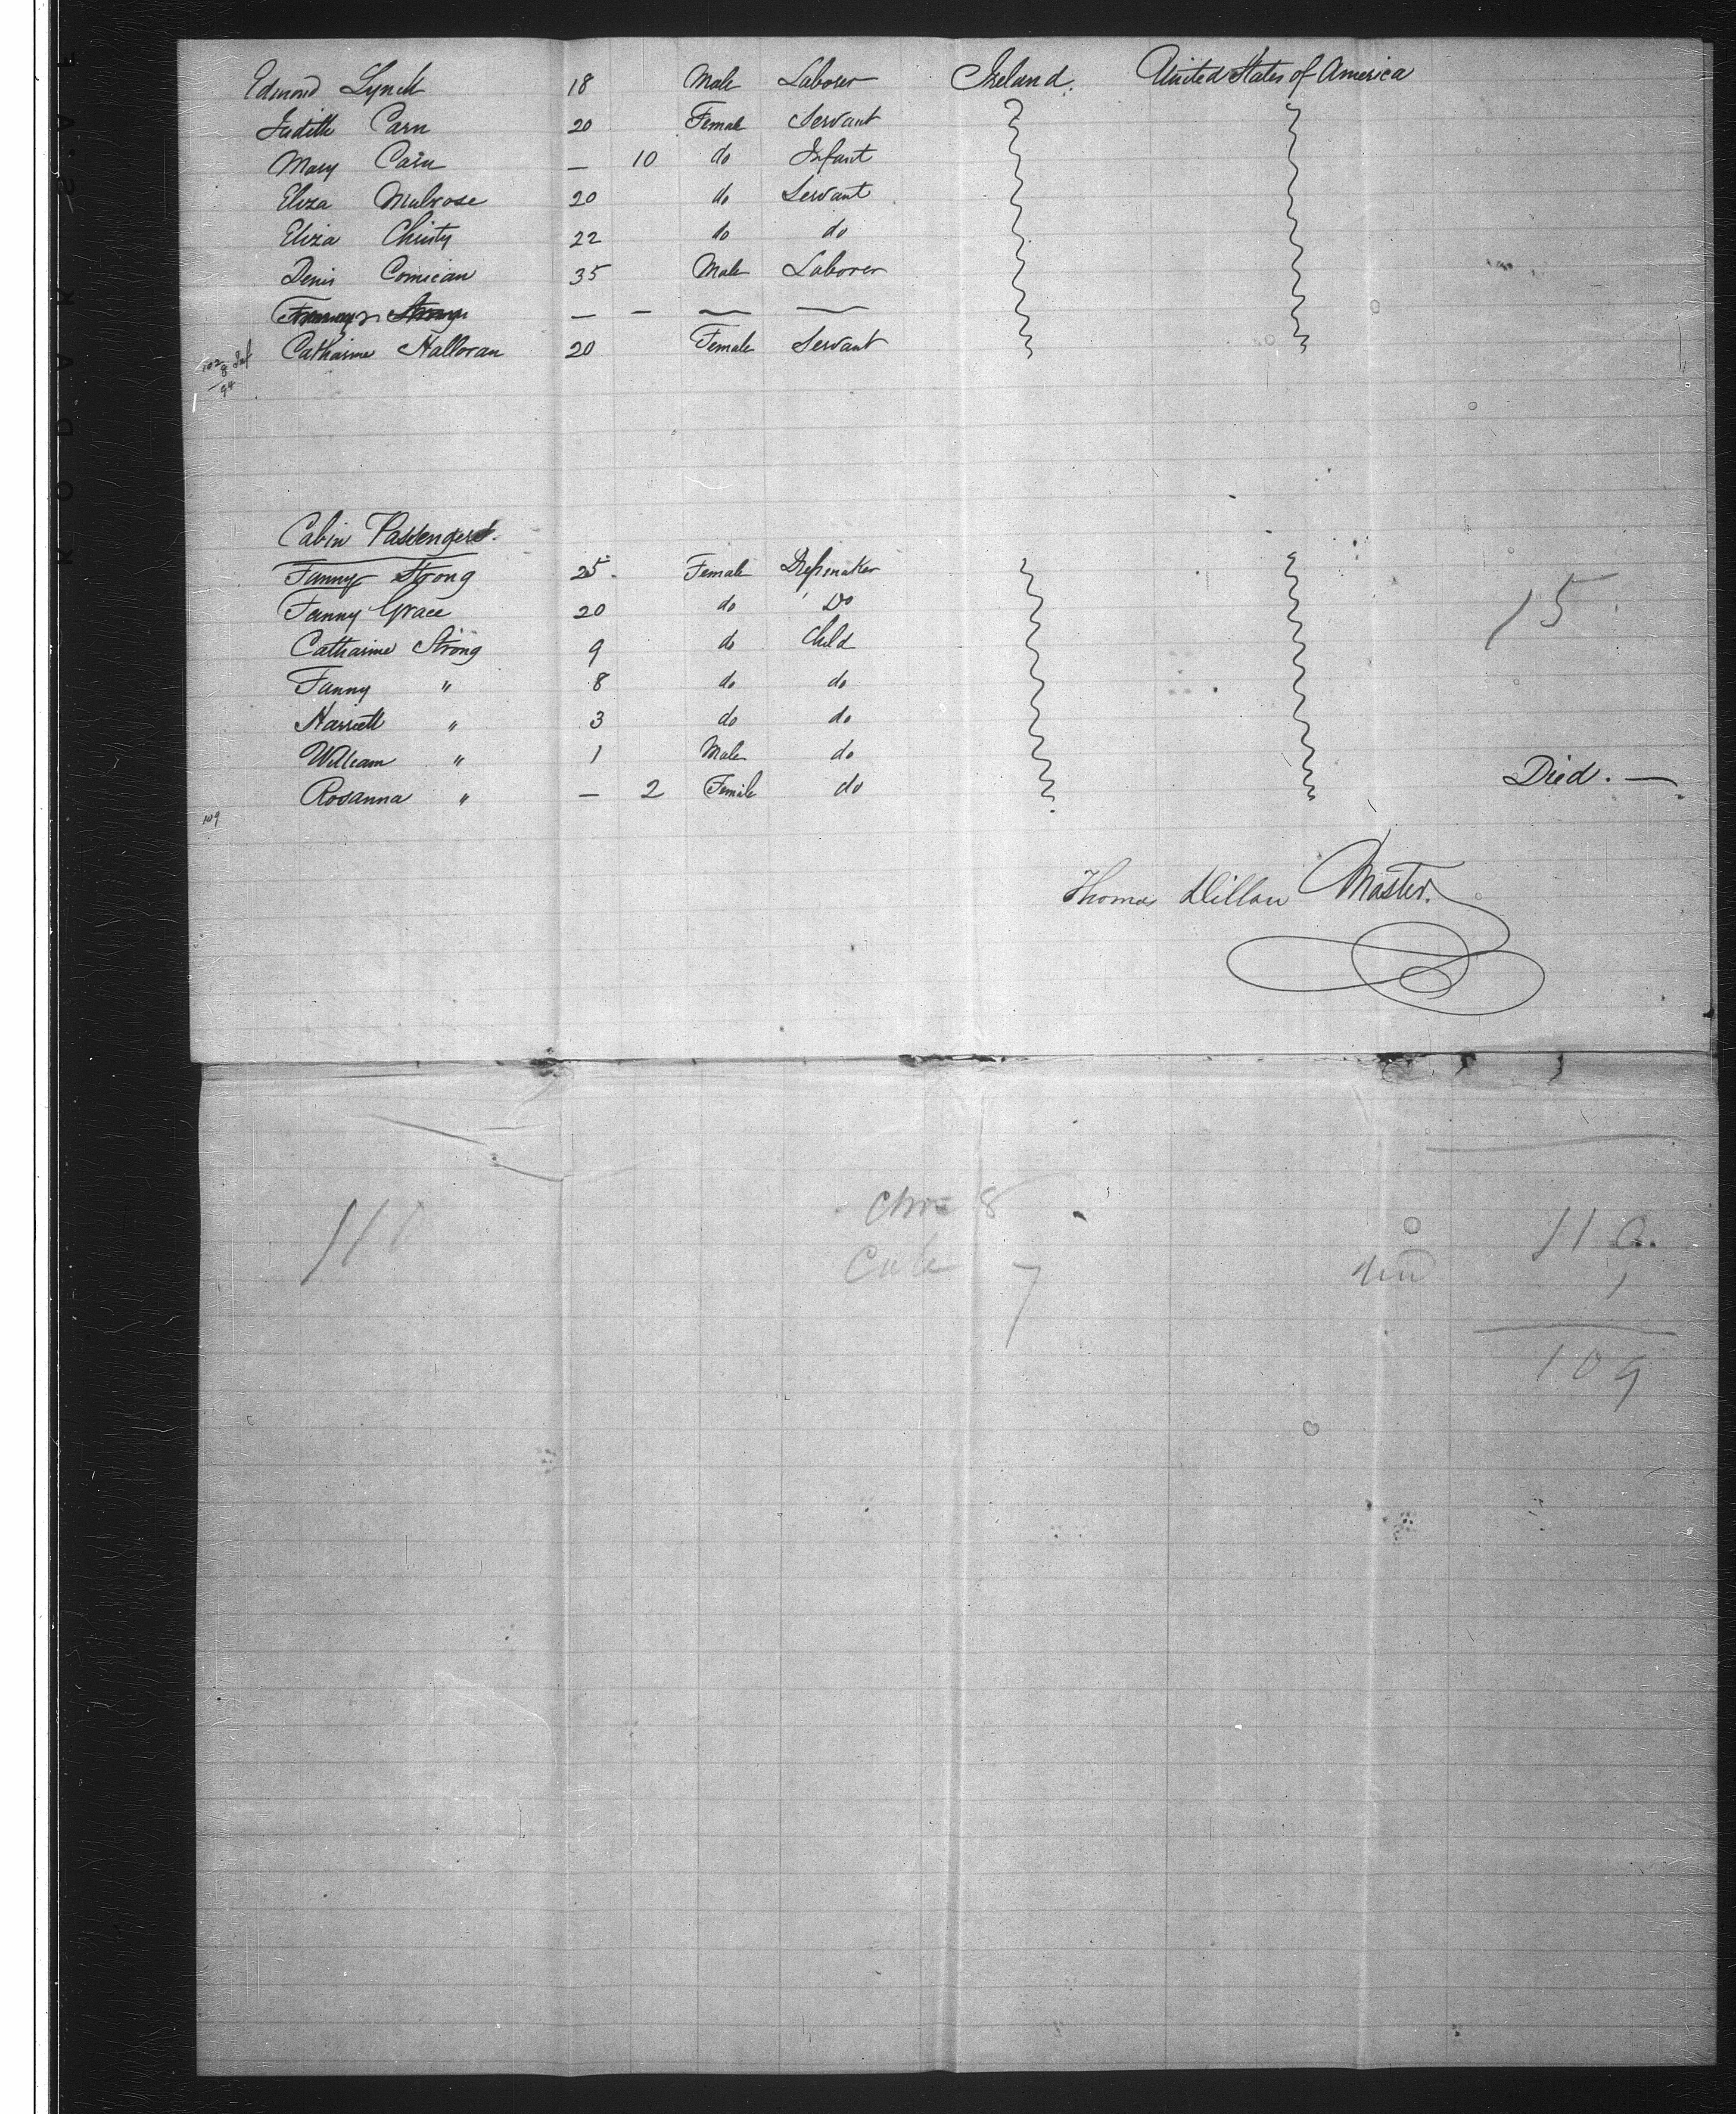 Edmond Lynch 18 Male Laborer Ireland. United States of America
Judith Carn 20 Female Servant
Mary Carn — 10 do Infant
Eliza Mulrose 20 do Servant
Eliza Christy 22 do do
Denis Comican 35 Male Laborer
Fanny Strong — — — —
Catharine Halloran 20 Female Servant
Cabin Passengers.
Fanny Strong 25. Female Dressmaker
Fanny Grace 20 do Do
15
Catharine Strong 9 do Child
Fanny " 8 do do
Harriett " 3 do do
William " 1 Male do
Rosanna " — 2 Female do Died. —
109
Thomas Dillon Master.
110 8 110.
7 1
109